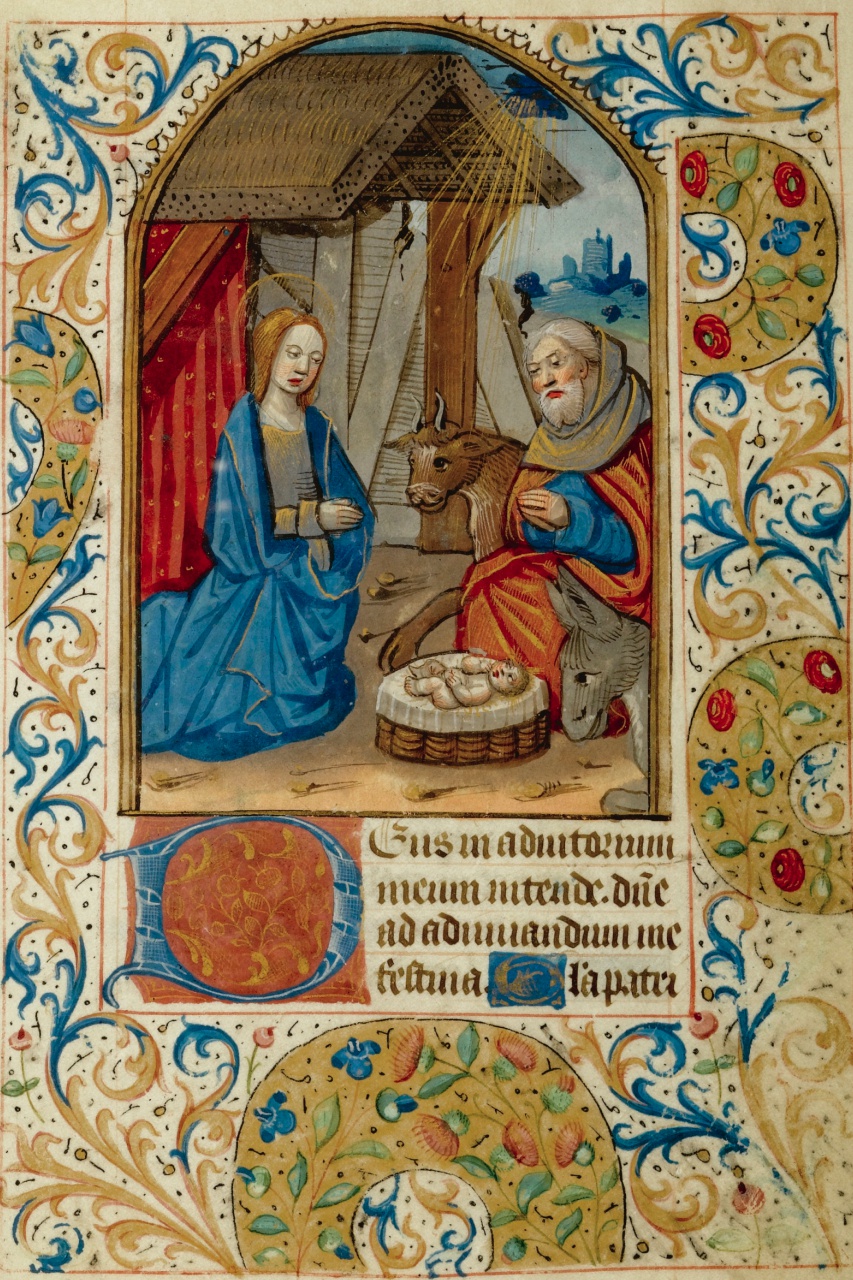 DEus in adiutorium
meum intende. dn̄e
ad adiuuandum me
festina. Gl'a patri